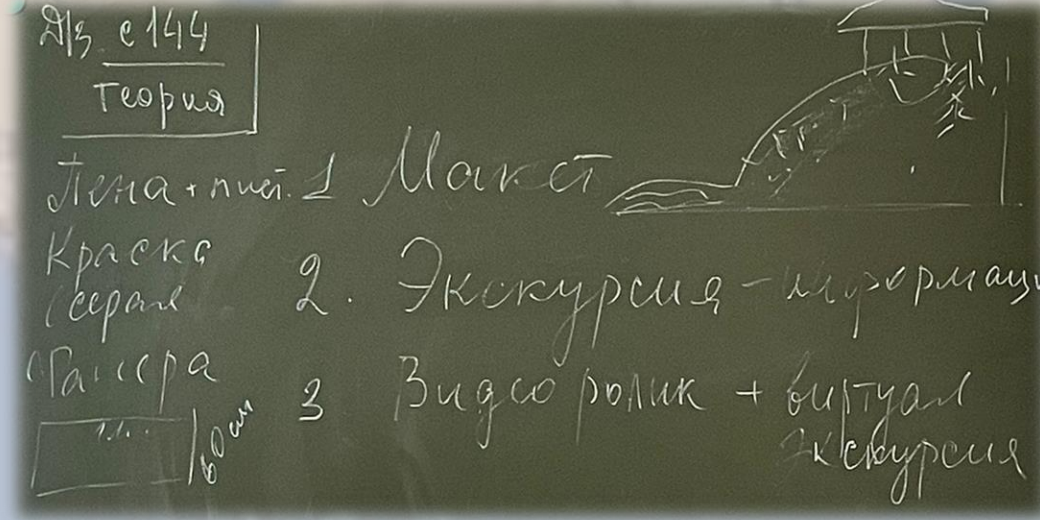 Д/з. с 144
теория
Пена + пист.
Краска
серая
1 Макет
2. Экскурсия - информаци
3 Видео ролик + виртуал
экскурсия
60 см